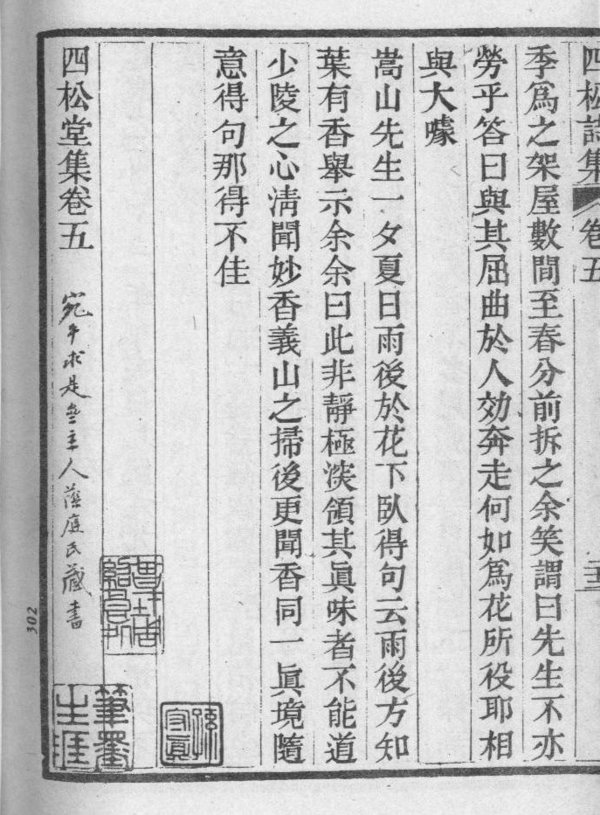 四松詩集 卷五
季爲之架屋數間至春分前拆之余笑謂曰先生不亦
勞乎答曰與其屈曲於人効奔走何如爲花所役耶相
與大噱
嵩山先生一夕夏日雨後於花下臥得句云雨後方知
葉有香舉示余余曰此非靜極淡領其眞味者不能道
少陵之心淸聞妙香義山之掃後更聞香同一眞境隨
意得句那得不佳
四松堂集卷五
宛平求是 主人 民藏書
筆墨生涯
302